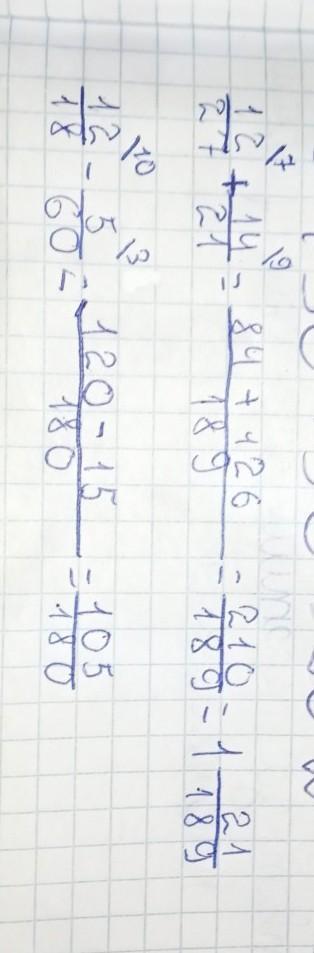 12/27 \7 + 14/21 \9 = 84 + 126/189 = 210/189 = 1 21/189
12/18 \10 - 5/60 \3 = 120 - 15/180 = 105/180